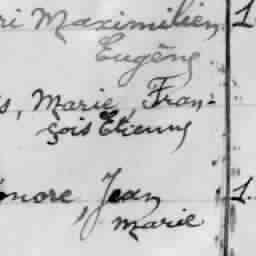 ri Maximilien 1
Eugène
s, Marie, Fran-
çois Etienne
onore, Jean 1.
Marie